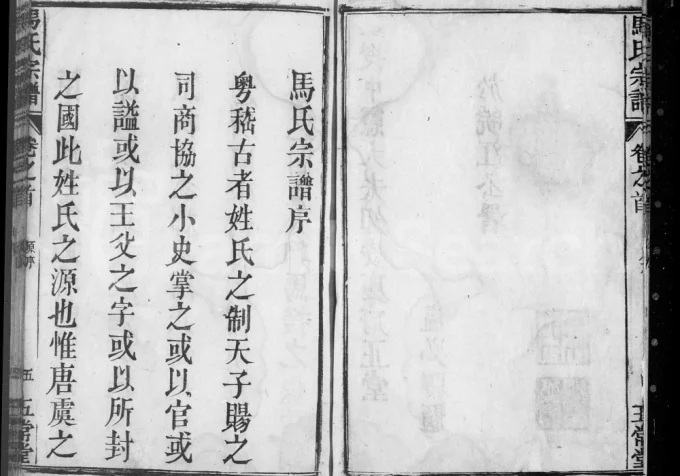 馬氏宗譜
卷之首
五常堂
馬氏宗譜序
粵稽古者姓氏之制天子賜之
司商協之小史掌之或以官或
以謚或以王父之字或以所封
之國此姓氏之源也惟唐虞之
馬氏宗譜
卷之首
原序
五
五常堂